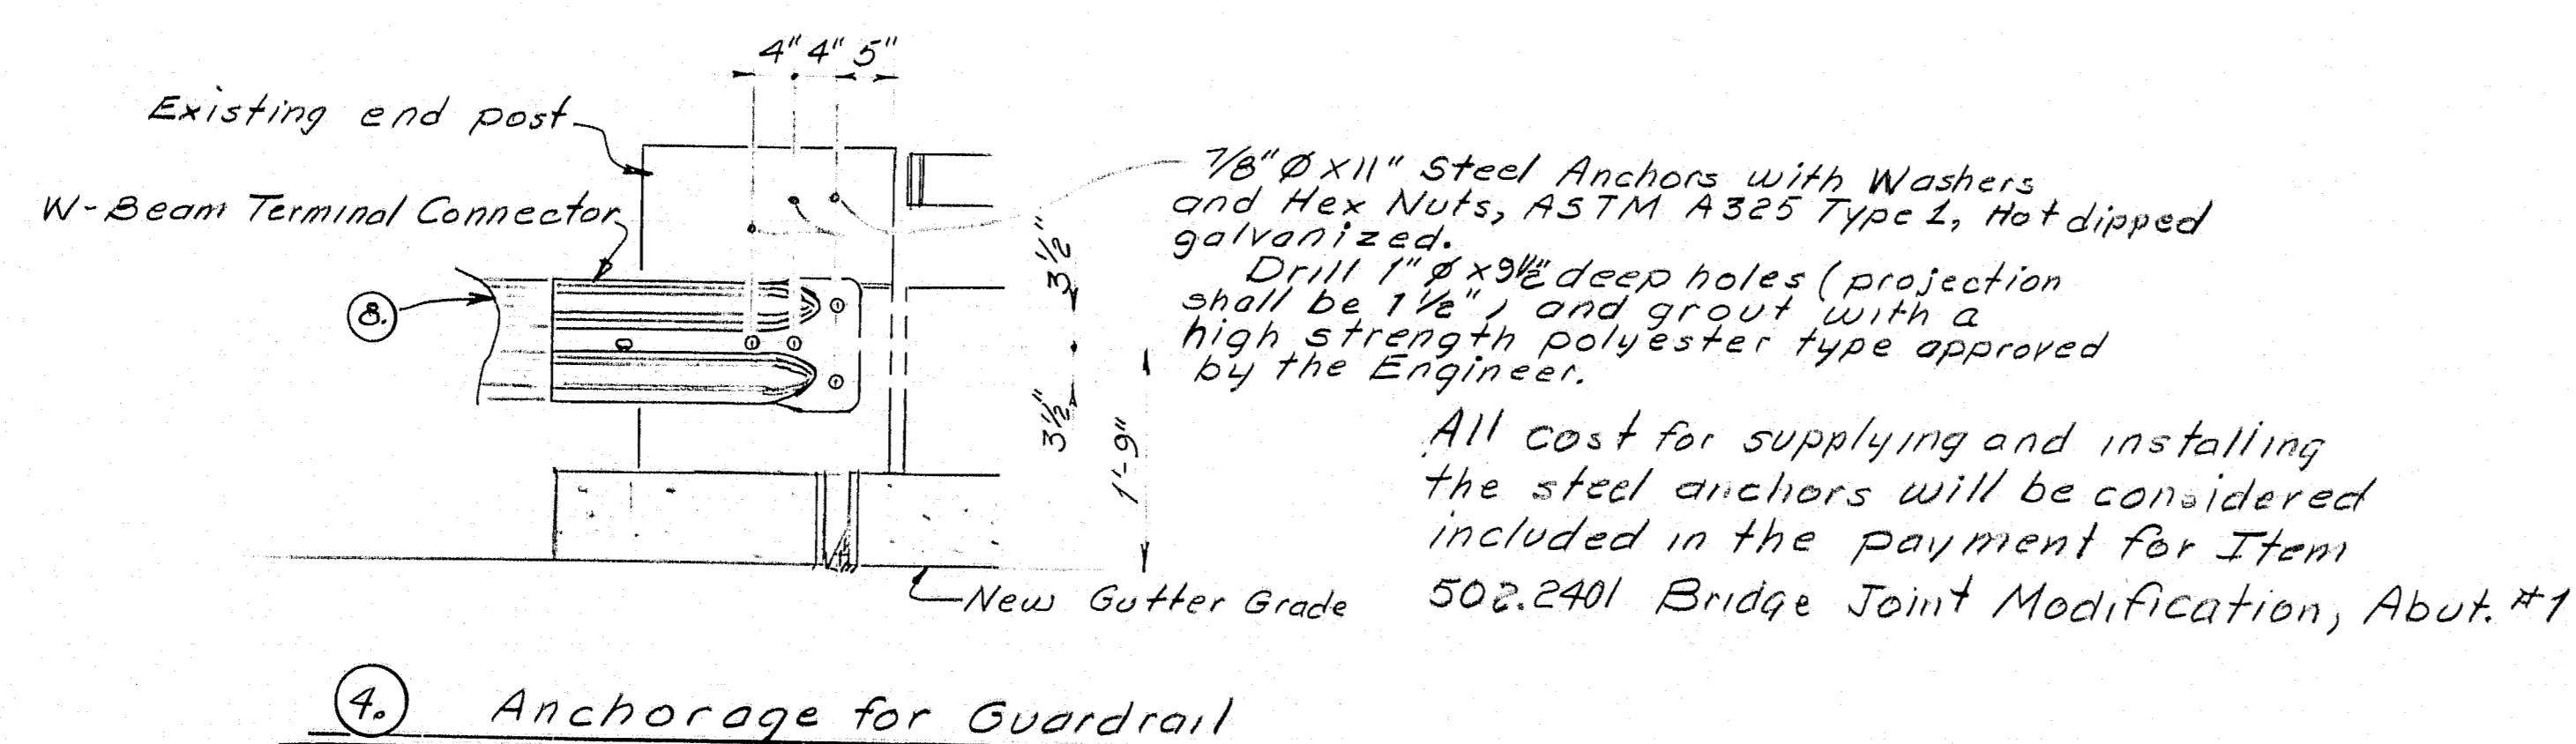 4" 4" 5"
Existing end post
W-Beam Terminal Connector
8.
7/8" Ø x 11" Steel Anchors with Washers
and Hex Nuts, ASTM A325 Type 1, Hot dipped
galvanized.
Drill 1" Ø x 9 1/2" deep holes (projection
shall be 1 1/2") and grout with a
high strength polyester type approved
by the Engineer.
3 1/2"
3 1/2"
1'-9"
All cost for supplying and installing
the steel anchors will be considered
included in the payment for Item
502.2401 Bridge Joint Modification, Abut. #1
New Gutter Grade
4. Anchorage for Guardrail